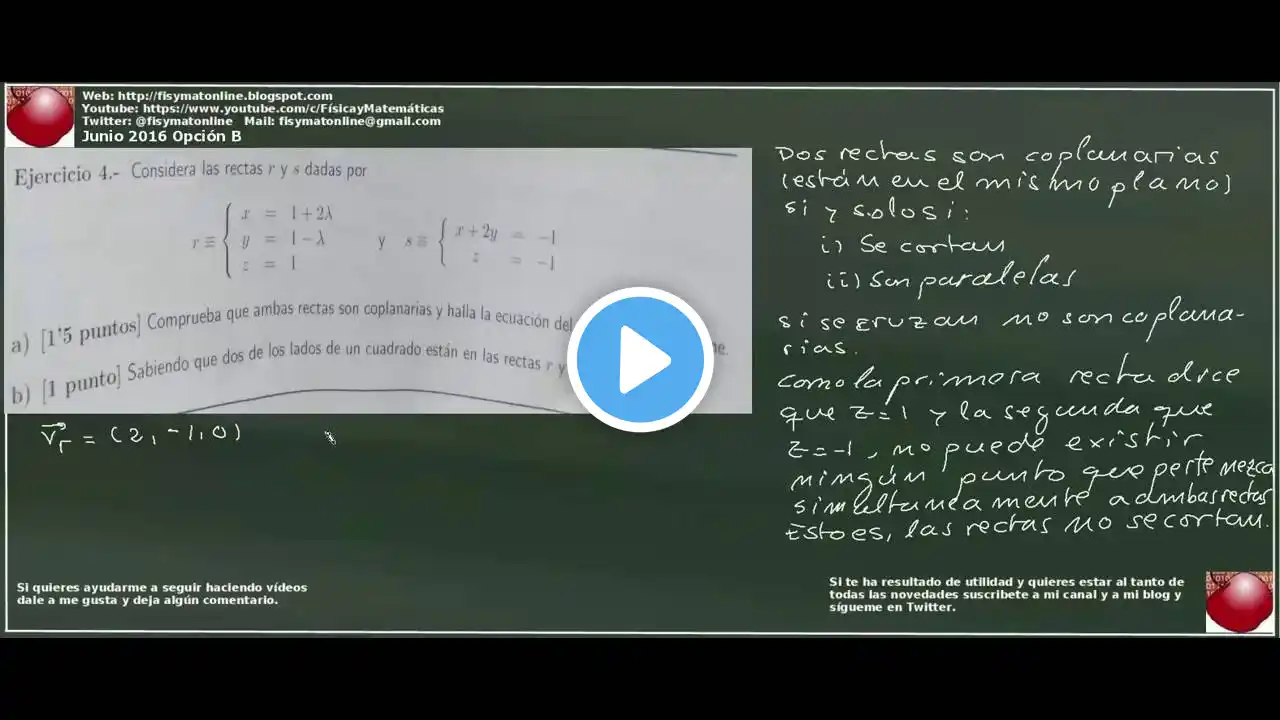 Web: http://fisymatonline.blogspot.com
Youtube: https://www.youtube.com/c/FísicayMatemáticas
Twitter: @fisymatonline Mail: fisymatonline@gmail.com
Junio 2016 Opción B
Ejercicio 4.- Considera las rectas r y s dadas por
r ≡ { x = 1 + 2λ
y = 1 − λ
z = 1
y s ≡ { x + 2y = −1
z = −1
a) [1'5 puntos] Comprueba que ambas rectas son coplanarias y halla la ecuación del
ne.
b) [1 punto] Sabiendo que dos de los lados de un cuadrado están en las rectas r y
v⃗r = (2, -1, 0)
Dos rectas son coplanarias
(están en el mismo plano)
si y solo si:
i) Se cortan
ii) Son paralelas
si se cruzan no son coplana-
rias.
como la primera recta dice
que z=1 y la segunda que
z=-1, no puede existir
ningún punto que pertenezca
simultanea mente a ambas rectas
Esto es, las rectas no se cortan.
Si quieres ayudarme a seguir haciendo vídeos
dale a me gusta y deja algún comentario.
Si te ha resultado de utilidad y quieres estar al tanto de
todas las novedades suscribete a mi canal y a mi blog y
sígueme en Twitter.